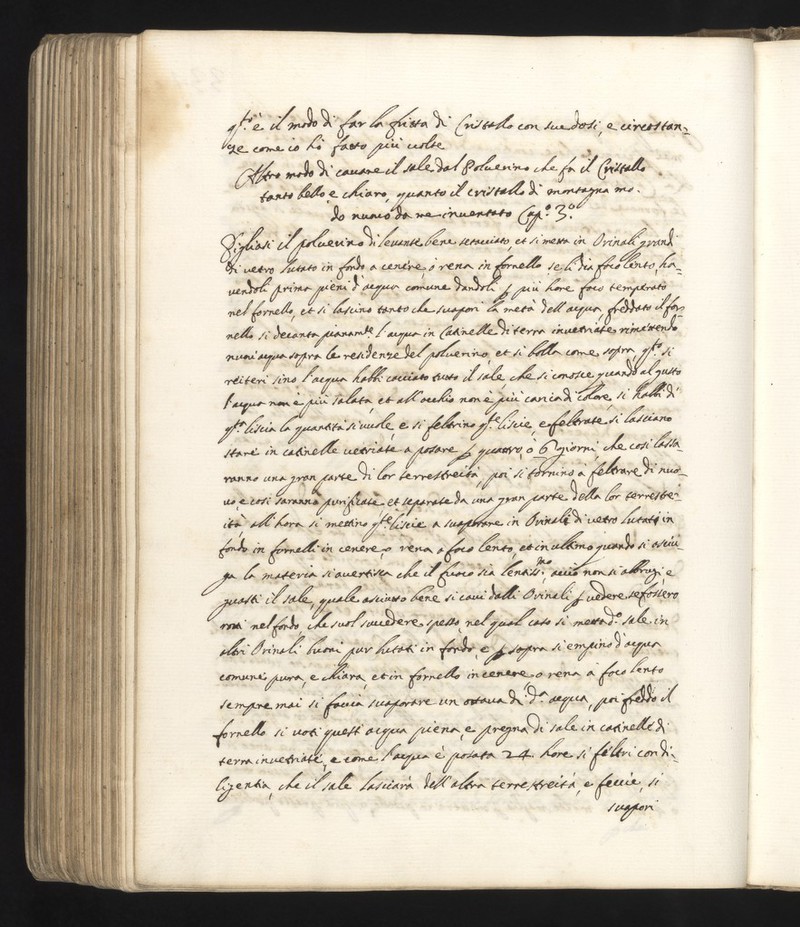 q.to è il modo di far la fritta di Cristallo con sue dosi, e circostan=
ze come io hò fatto più volte
Altro modo di cavare il sale dal Polverino che fa il Cristallo
tanto bello, e chiaro, quanto il cristallo di montagna mo.
do nuovo da me inventato Cap.o 3.o
Pigliasi il polverino di levante bene setacciato, et si metta in Orinali grandi
di vetro lutato in fondo a cenere, ò rena in fornello se li dia foco lento, ha=
vendoli prima pieni d'acqua comune dandoli p più hore foco temperato
nel fornello, et si lascino tanto che svapori la metà dell'acqua, freddato il for=
nello si decanta pianam.te l'acqua in Catinelle di terra invetriate rimettendo
nuovi acqua sopra le residenze del polverino, et si bolla come sopra, q.to si
reiteri sino l'acqua habbi cacciato tutto il sale che si conosce quando al gusto
l'acqua non è più salata, et all'occhio non è più carica di colore, si habbi di
q.ta liscia la quantità si vuole, e si feltrino q.te liscie, e feltrate si lasciano
stare in catinelle vetriate a posare p quattro, ò 6 giorni, che così lassa=
ranno una gran parte di lor terrestreità, poi si tornino à feltrare di nuo=
vo e così saranno purificate, et separate da una gran parte della lor terrestre=
ità, all'hora si mettino q.te liscie a svaporare in Orinali di vetro lutati in
fondo in fornelli in cenere, o rena a foco lento, et in ultimo quando si asciu
ga la materia si avertisca che il fuoco sia lentiss.mo acciò non si abbrugi, e
guasti il sale, quale asciutto bene si cavi dalli Orinali p vedere se fossero
rotti nel fondo, che suol succedere spesso, nel qual caso si metta d.o sale in
altri Orinali buoni pur lutati in fondo, e p sopra si empino d'acqua
comune pura, e chiara, et in fornello in cenere o rena à foco lento
sempre mai si faccia svaporare un ottava di d.a acqua, poi freddo il
fornello si voti quest'acqua piena, e pregna di sale in catinelle di
terra invetriate, e come l'acqua è posata 24 hore si feltri con di=
ligentia, che il sale lasciarà dell'altra terrestreità, e feccie, si
svapori